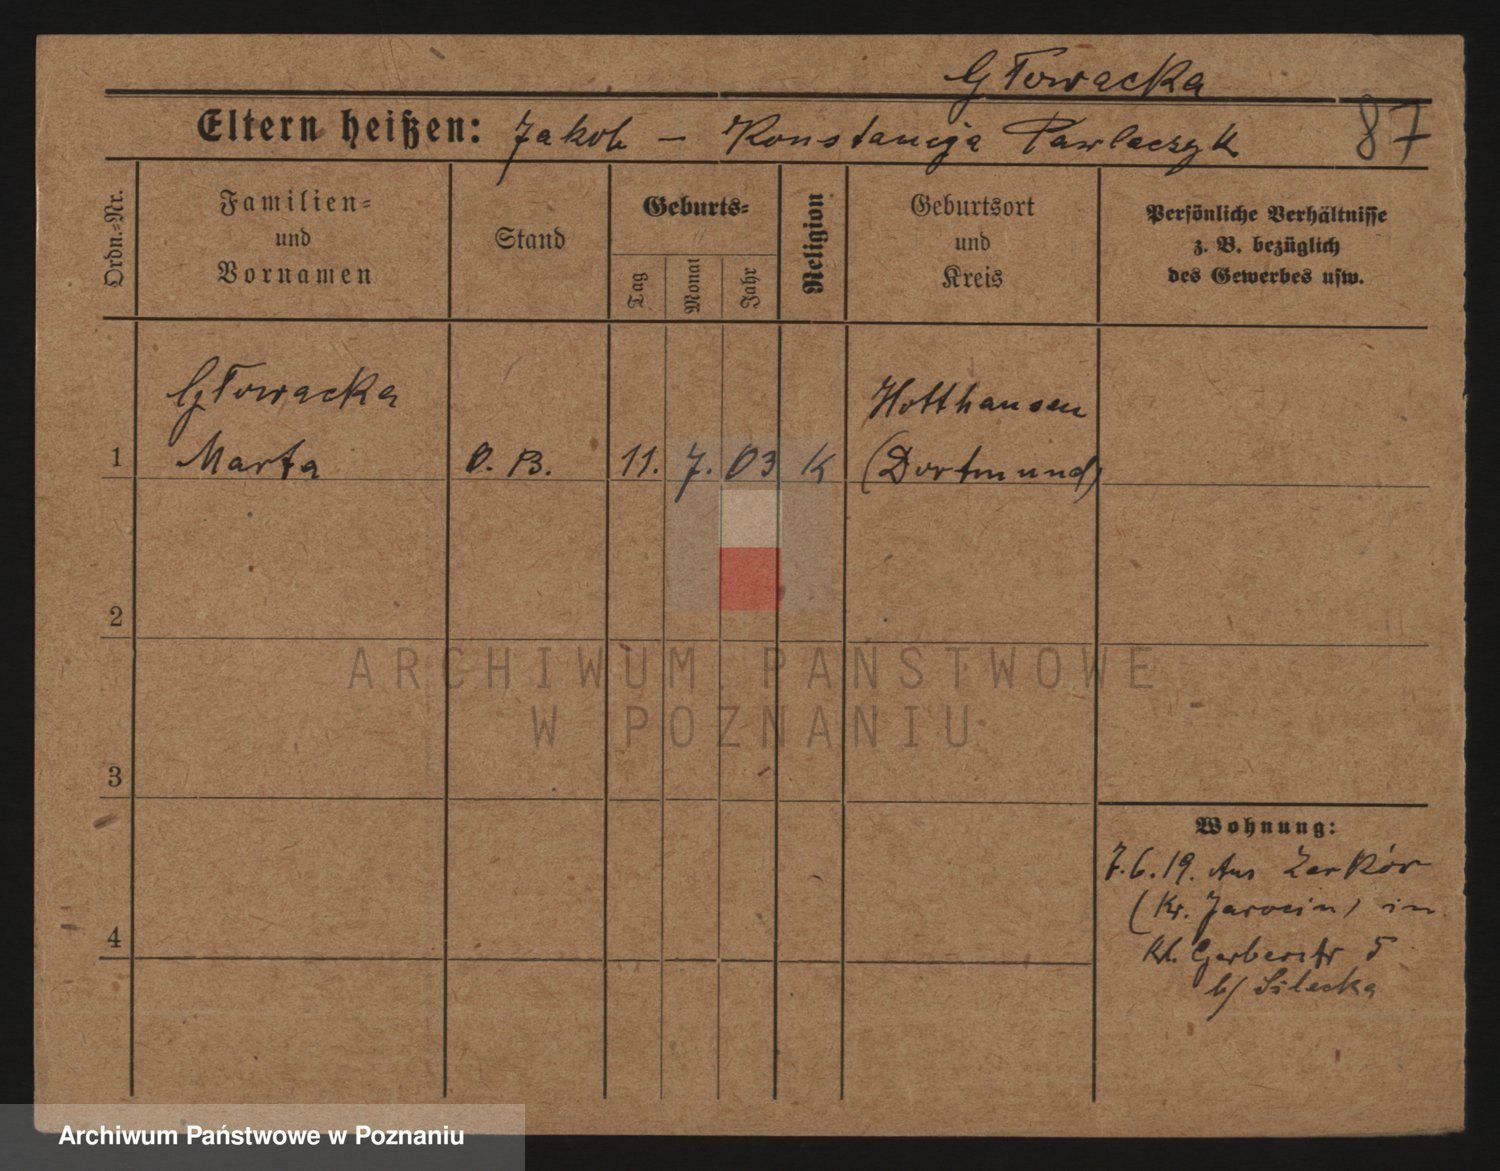 Głowacka
Eltern heißen: Jakob – Konstancja Pawlaczyk 87
Ordn.-Nr.
Familien-
und
Vornamen
Stand
Geburts-
Tag
Monat
Jahr
Religion
Geburtsort
und
Kreis
Persönliche Verhältnisse
z. B. bezüglich
des Gewerbes usw.
Głowacka Hotthausen
1 Marta O. B. 11. 7. 03 K (Dortmund)
2
ARCHIWUM PAŃSTWOWE
W POZNANIU
3
Wohnung:
7.6.19. Aus Zerków
(Kr. Jarocin) in
4
Kl. Gerberstr 5
b/ Silecka
Archiwum Państwowe w Poznaniu